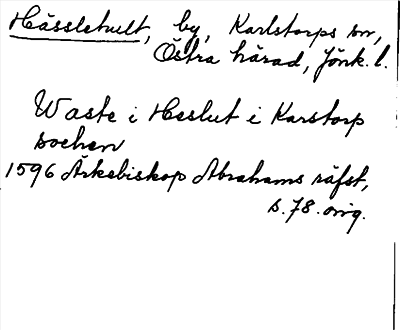 Hässlehult, by, Karlstorps sn,
Östra härad, Jönk. l.
Waste i Heslut i Karstorp
sochen
1596 Ärkebiskop Abrahams räfst,
s. 78. orig.